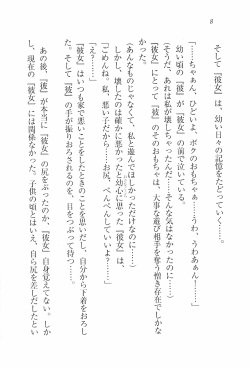 8
そして『彼女』は、幼い日々の記憶をたどっていく……。
「……ちゃぁん、ひどいよ、ボクのおもちゃぁ……うわ、うわあぁん！……」
幼い頃の『彼』が『彼女』の前で泣いている。
（そうだ、あれは私が壊しちゃった……そんな気はなかったのに……）
『彼女』にとって『彼』のそのおもちゃは、大事な遊び相手を奪う憎き存在でしかな
かった。
（あんなものじゃなくて、私と遊んでほしかっただけなのに……）
しかし、壊したのは確かに悪かったと幼心に思った『彼女』は、
「ごめんね。私、悪い子だから……お尻、ぺんぺんしていいよ」
「え？……」
『彼女』はいつも家で悪いことをしたときのことを思いだし、自分から下着をおろし
た。そして『彼』の手が振りおろされるのを、目をつぶって待つ……
あの後、『彼』が本当に『彼女』の尻をぶったのか、『彼女』自身覚えてない。しか
し、現在の『彼女』には関係なかった。子供の頃とはいえ、自ら尻を差しだしたとい